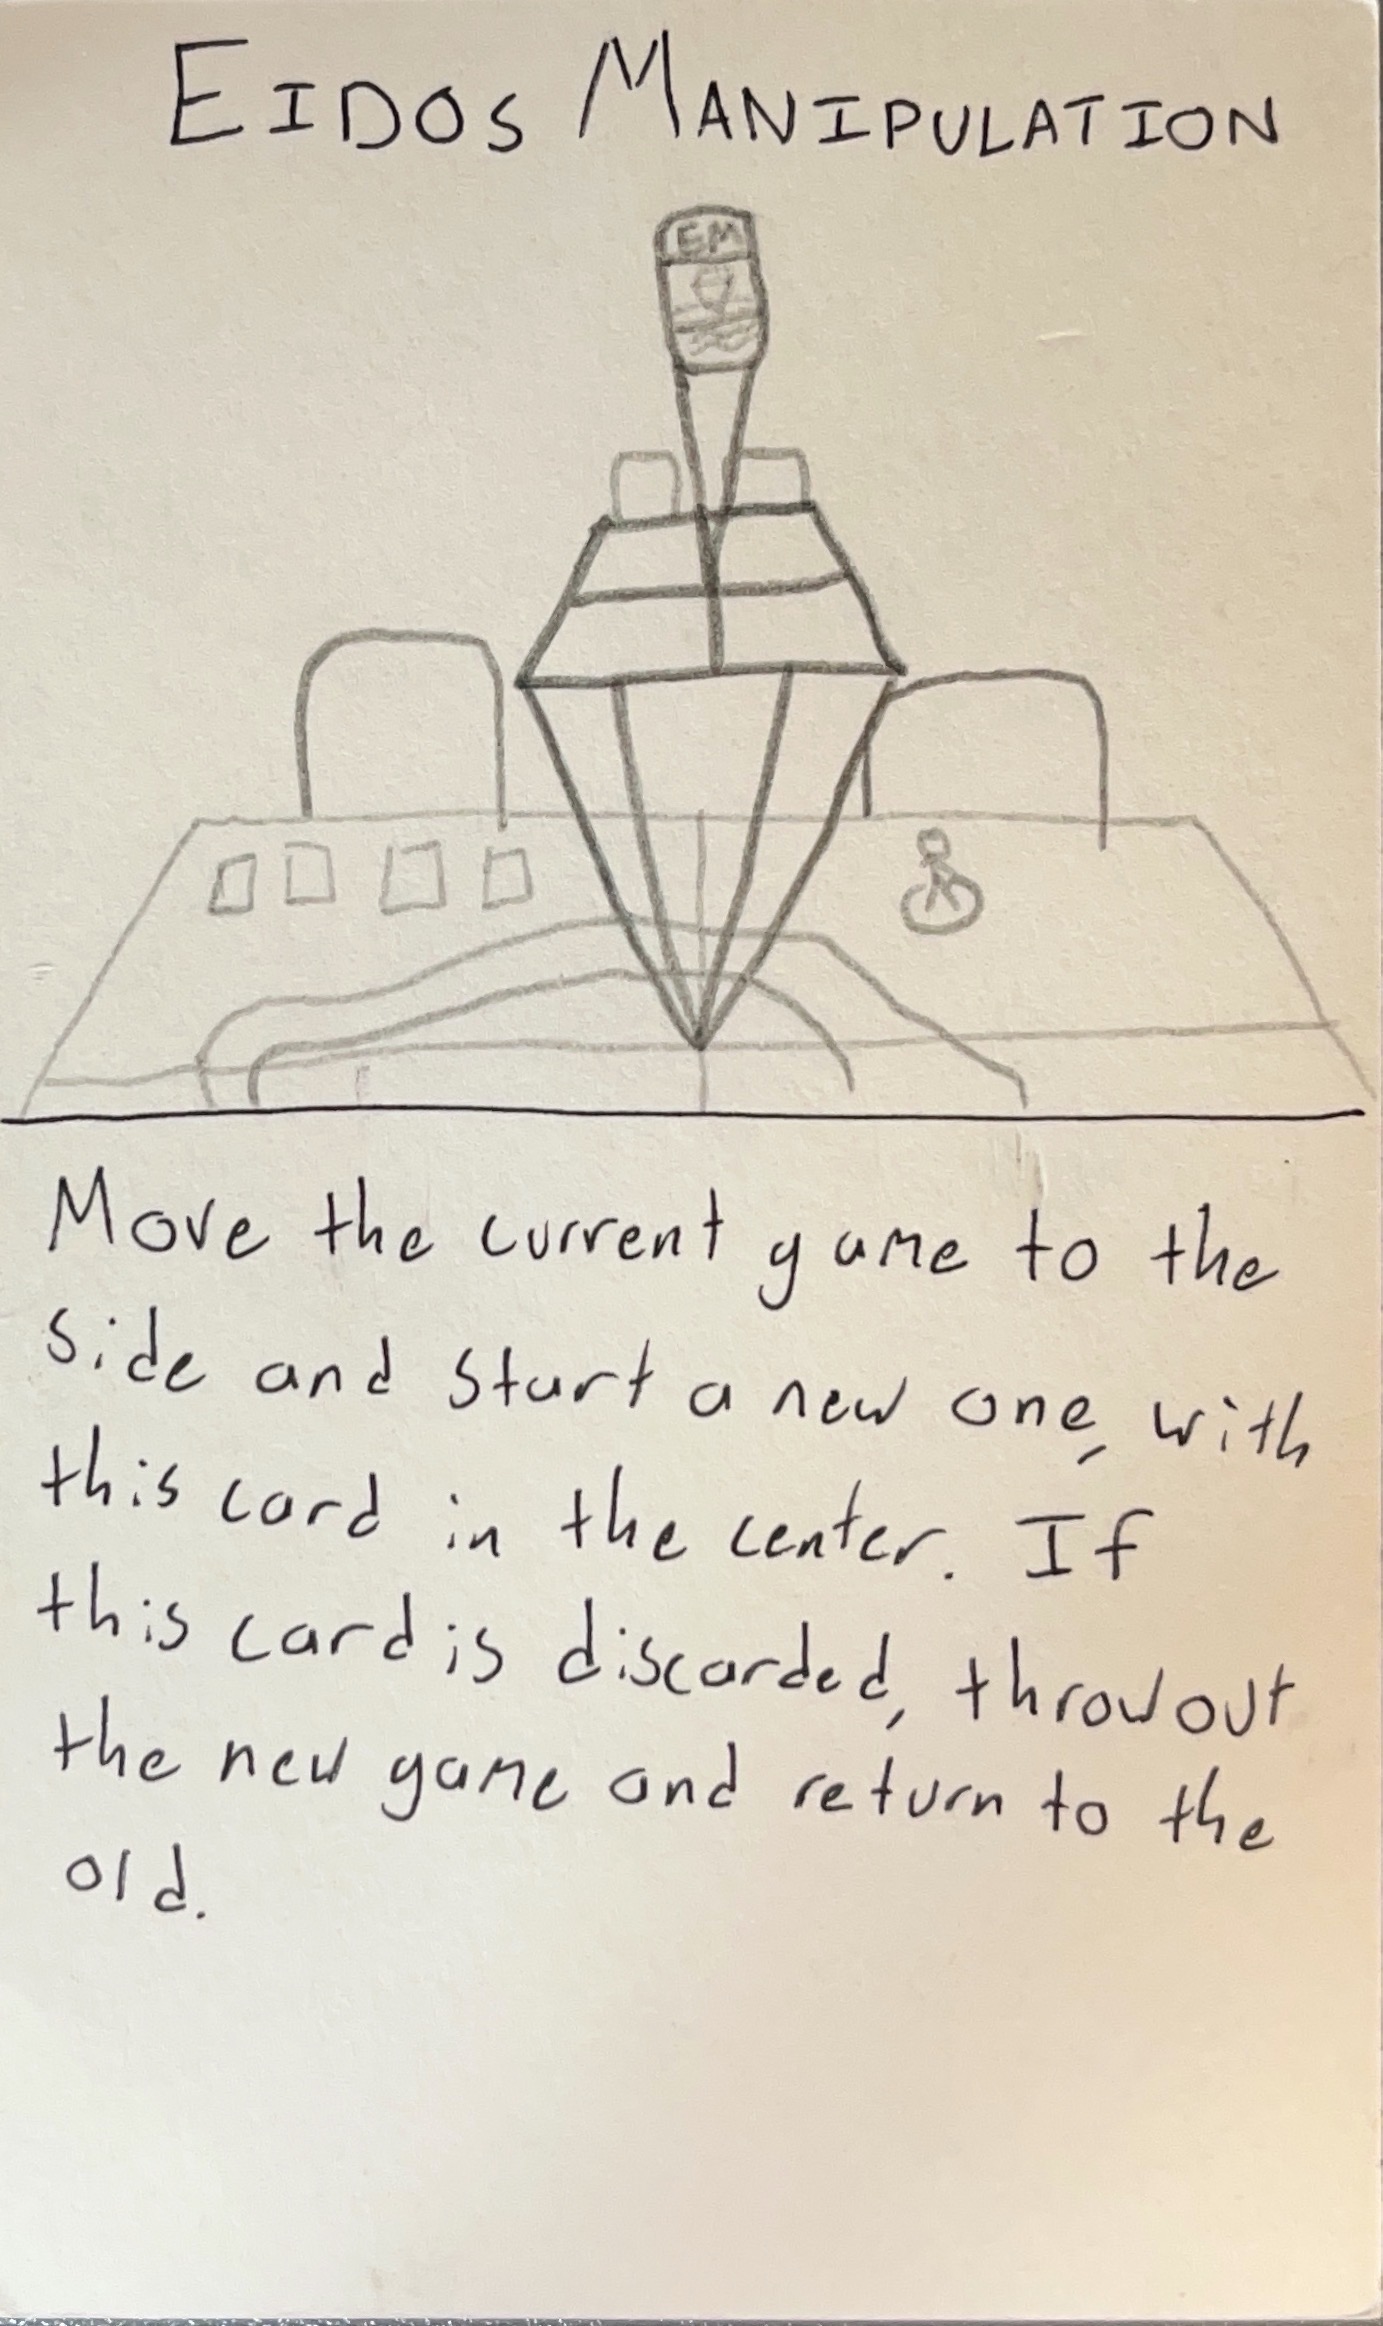 EIDOS MANIPULATION
EM
Move the current game to the
side and start a new one, with
this card in the center. If
this card is discarded, throw out
the new game and return to the
old.